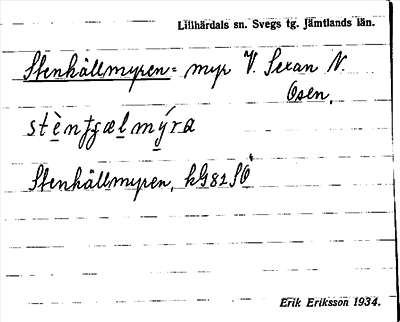 Lillhärdals sn. Svegs tg. Jämtlands län.
Stenhällmyren = myr V. Sexan N.
Osen.
stènfgælmýra
Stenhällmyren, kG82SÖ
Erik Eriksson 1934.